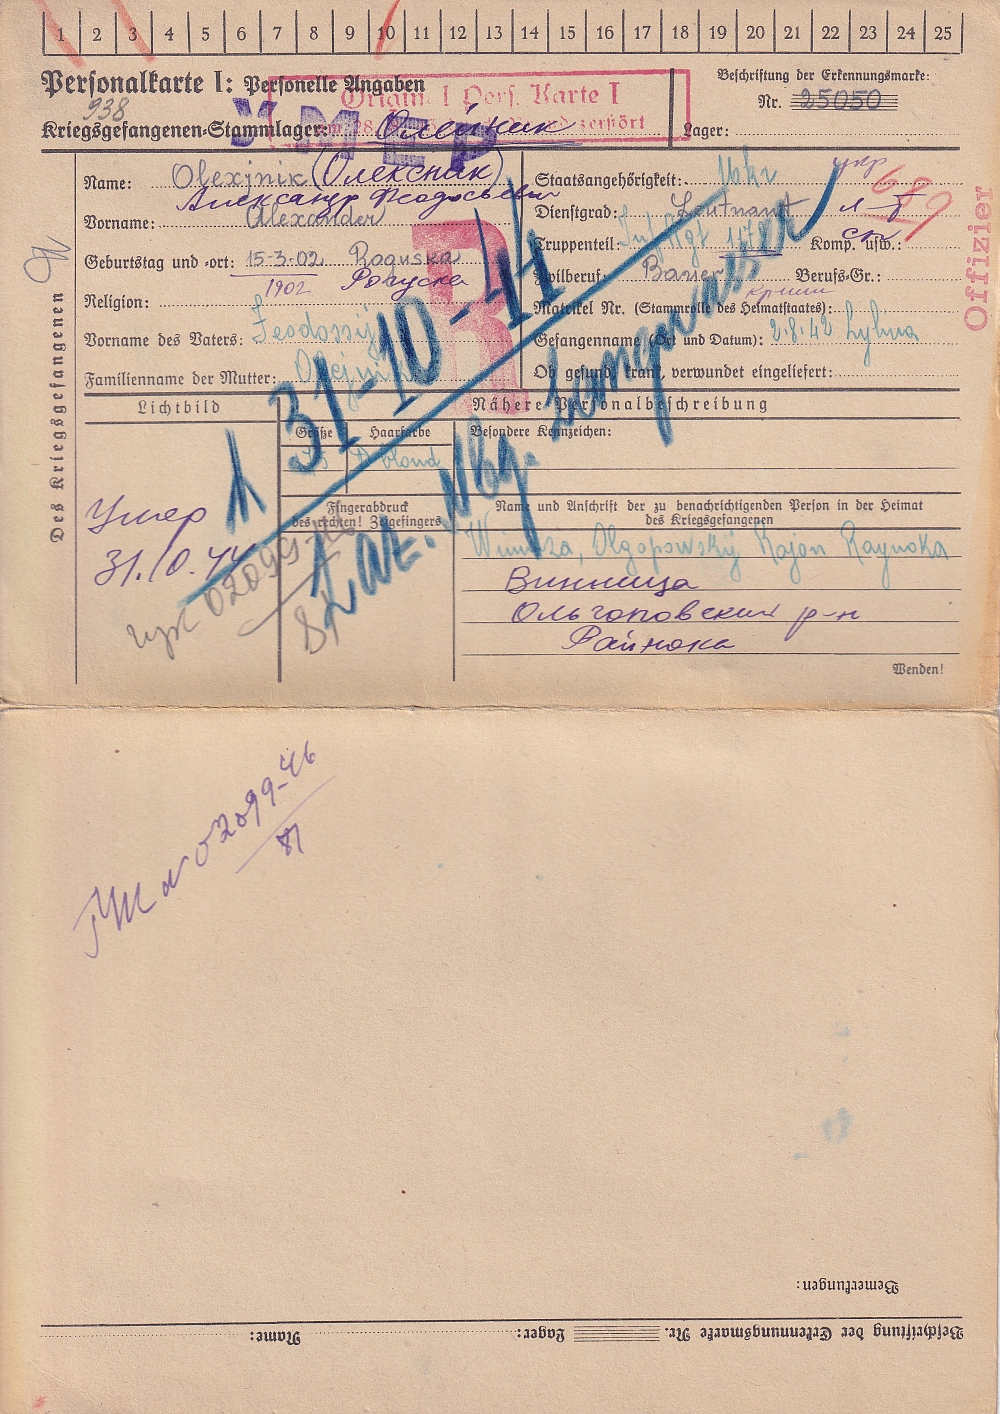 1 2 3 4 5 6 7 8 9 10 11 12 13 14 15 16 17 18 19 20 21 22 23 24 25
Personalkarte I: Personelle Angaben
938
Original Pers. Karte I
zerstört
Beschriftung der Erkennungsmarke:
Nr. 25050
Kriegsgefangenen-Stammlager: Олейник
Lager:
УМЕР
Des Kriegsgefangenen
Offizier
689
Name: Olexjnik (Олексник)
Александр Феодосьевич
Vorname: Alexander
Geburtstag und -ort: 15-3-02 Roguska
1902 Рогуска
Religion:
Vorname des Vaters: Feodossij
Familienname der Mutter:
Staatsangehörigkeit: Ukr укр
Dienstgrad: Leutnant л-т
Truppenteil: Inf. Rgt Komp. usw.:
Zivilberuf: Bauer Berufs-Gr.:
Matrikel Nr. (Stammrolle des Heimatstaates):
Gefangenname (Ort und Datum): 2.8.42
Ob gesund, krank, verwundet eingeliefert:
R
31-10-44
Lichtbild
Nähere Personalbeschreibung
Größe Haarfarbe Besondere Kennzeichen:
blond
Умер
31.10.44
Fingerabdruck
des rechten! Zeigefingers
Name und Anschrift der zu benachrichtigenden Person in der Heimat
des Kriegsgefangenen
Winniza, Olgopowskij Rajon Raynoka
Винница
Ольгоповский р-н
Райнока
02099-46
Wenden!
02099-46
81
Bemerkungen:
Beschriftung der Erkennungsmarke Nr. Lager: Name: